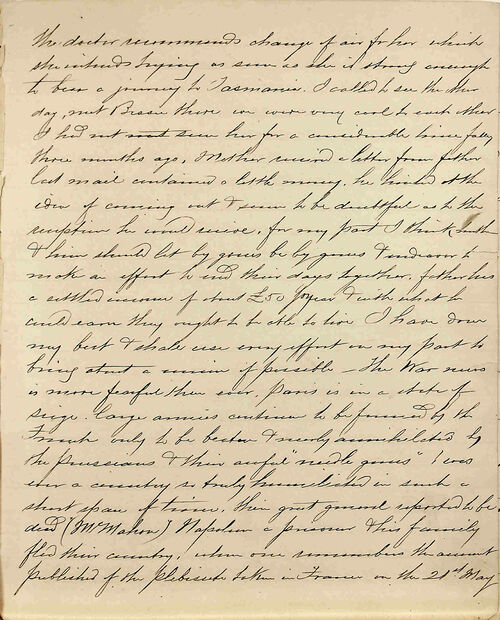 The doctor recommends change of air for her which
she intends trying as soon as she is strong enough
to bear a journey to Tasmania. I called to see the other
day, met Bessie there we were very cool to each other
I had not seen her for a considerable time fully
three months ago, Mother received a letter from father
last mail contained a little money. he hinted at the
idea of coming out & seem to be doubtful as to the
reception he would receive, for my part I think, both
& him should let by gones be by gones & endeavor to
make an effort to end their days together, father has
a settled income of about £50 year & with what he
could earn they ought to be able to live I have done
my best & shall use every effort on my part to
bring about a union if possible – The War news
is more fearful than ever, Paris is in a state of
seige. large armies continue to be formed by the
French only to be beaten & nearly annihilated by
the Prussians & their awful "needle guns" ! was
ever a country so truly humiliated in such a
short space of time, their great general reported to be
dead (McMahon) Napoleon a prisoner & his family
fled their country, when one remembers the amount
published of the plebiscite taken in France on the 21st May